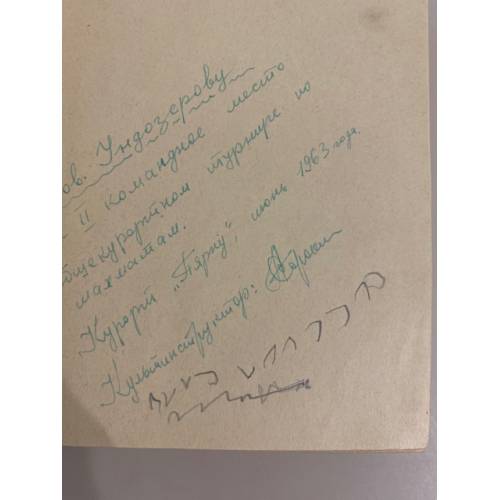 ов. Ундозерову
II командное место
общекурортном турнире по
шахматам.
Курорт „Пярну", июнь 1963 года.
Культинструктор: